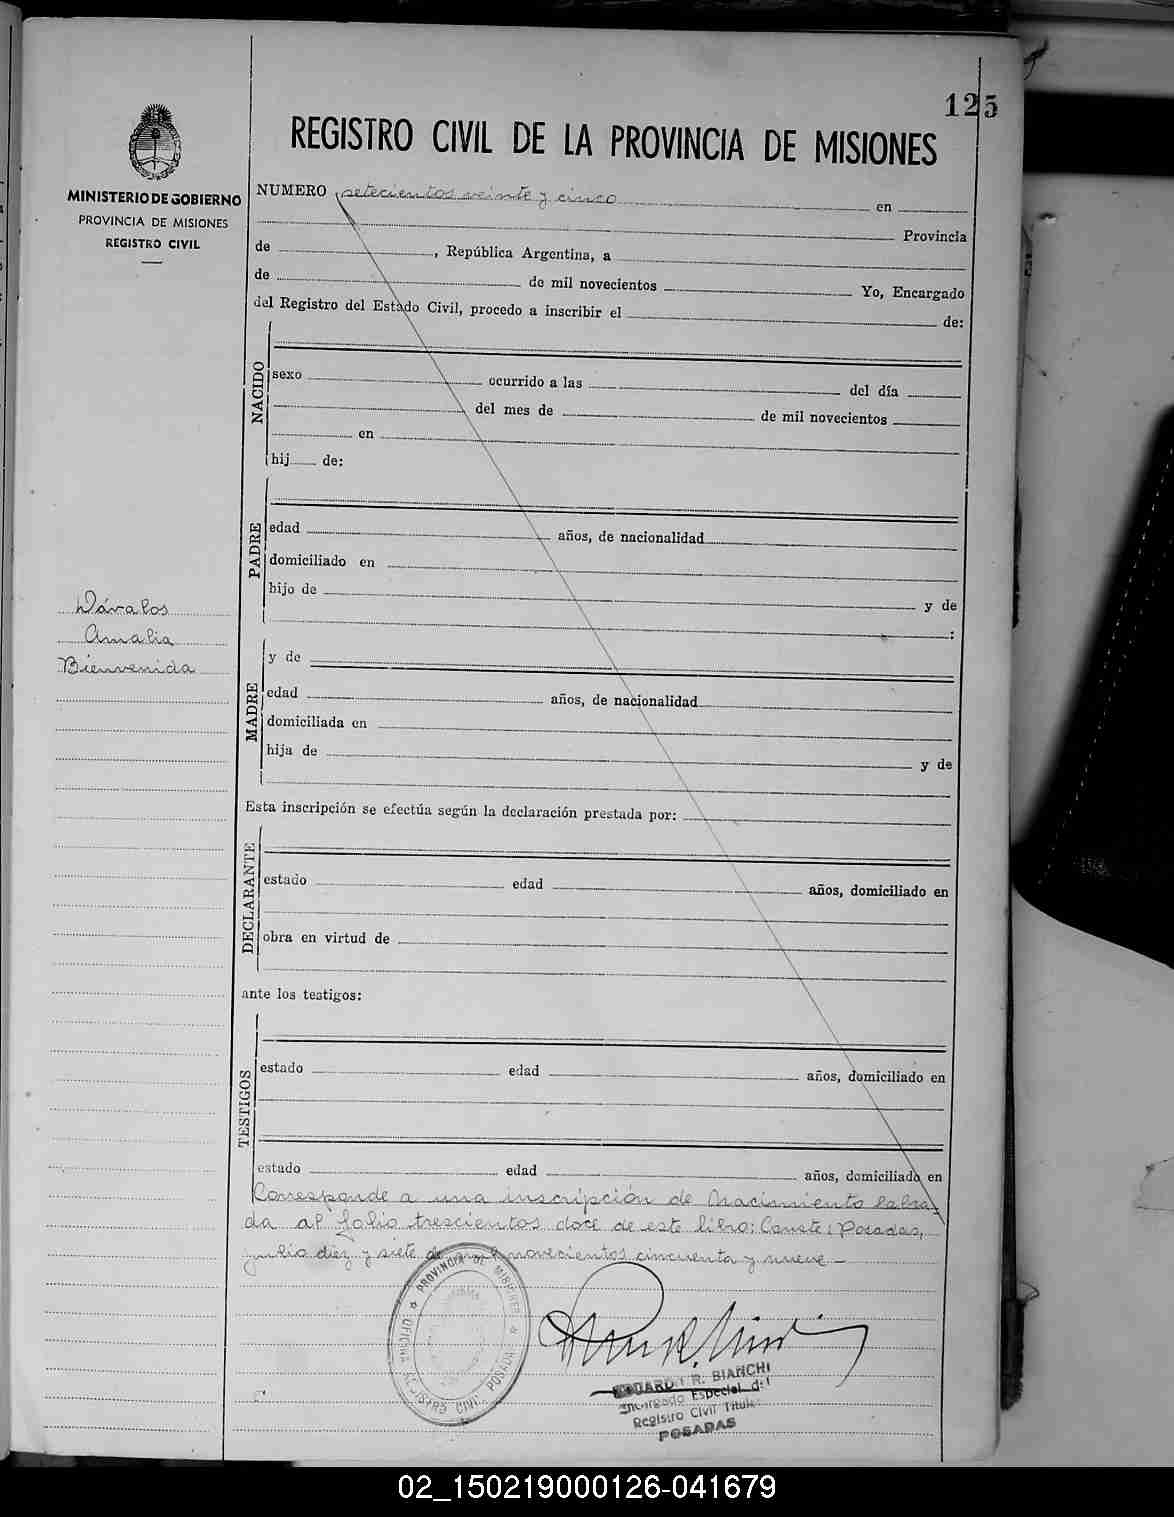 125
REGISTRO CIVIL DE LA PROVINCIA DE MISIONES
MINISTERIO DE GOBIERNO
PROVINCIA DE MISIONES
REGISTRO CIVIL
NUMERO setecientos veinte y cinco en
Provincia
de , República Argentina, a
de de mil novecientos Yo, Encargado
del Registro del Estado Civil, procedo a inscribir el de:
NACIDO
sexo ocurrido a las del día
del mes de de mil novecientos
en
hij de:
PADRE
edad años, de nacionalidad
domiciliado en
hijo de y de
:
Dávalos
Amalia
Bienvenida
MADRE
y de
edad años, de nacionalidad
domiciliada en
hija de y de
Esta inscripción se efectúa según la declaración prestada por:
DECLARANTE
estado edad años, domiciliado en
obra en virtud de
ante los testigos:
TESTIGOS
estado edad años, domiciliado en
estado edad años, domiciliado en
Corresponde a una inscripción de Nacimiento labra-
da al folio trescientos doce de este libro: Conste: Posadas,
julio diez y siete de mil novecientos cincuenta y nueve -
PROVINCIA DE MISIONES
OFICINA REGISTRO CIVIL POSADAS
EDUARDO R. BIANCHI
Encargado Especial del
Registro Civil Titular
POSADAS
02_150219000126-041679